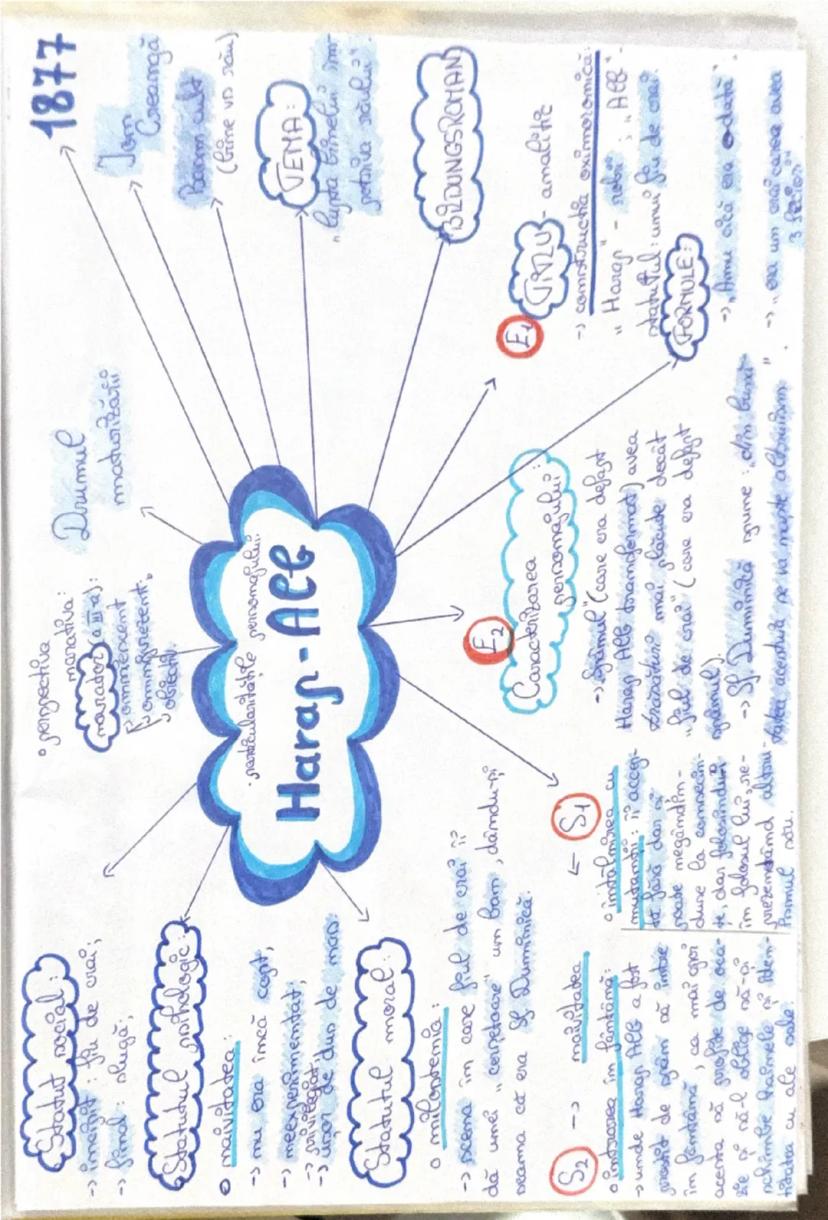 1877
Ion
Creangă
basm cult
(bine vs rău)
TEMA:
„lupta binelui îm-
potriva răului".
BILDUNGSROMAN
E1
TITLU - analitic
-> construcția oximoronică:
"Harap" - rob; "Alb" -
statutul unui fiu de crai.
FORMULE:
-> „Amu cică era odată".
-> „era un crai carea avea
3 feciori"
Drumul
maturizării
• perspectiva
narativă:
narator (a III-a):
omniscient
omniprezent
obiectiv
• particularitățile personajului:
Harap-Alb
E2
Caracterizarea
personajului:
-> spânul" (care era defapt
Harap Alb transformat) avea
trăsături mai plăcute decât
„fiul de crai" (care era defapt
spânul).
-> Sf. Duminică spune: „din bună-
tatea acestuia pe va naște altruism".
Statut social:
-> inegit: fiu de crai;
-> final: slugă;
Statutul psihologic:
• naivitatea:
-> nu era încă copt,
-> neexperimentat;
-> privilegiat;
-> ușor de dus de nas
Statutul moral:
• milostenia:
-> scena în care fiul de crai îi
dă unei "cersetoare" un ban, dându-și
seama că era Sf Duminică.
S1
<-
• întâlnirea cu
furnicile: îi accep-
te fără dar să
poate negândin-
duse la consecin-
te, dar folosindu-
în folosul lui, re-
prezentând altru-
ismul său.
S2 -> naivitatea
• intrarea în fântână:
-> unde Harap Alb a fost
păcălit de spân să intre
în fântână, ca mai apoi
acesta să profite de oca-
zie și să-l oblige să-și
schimbe hainele și iden-
titatea cu ale sale.